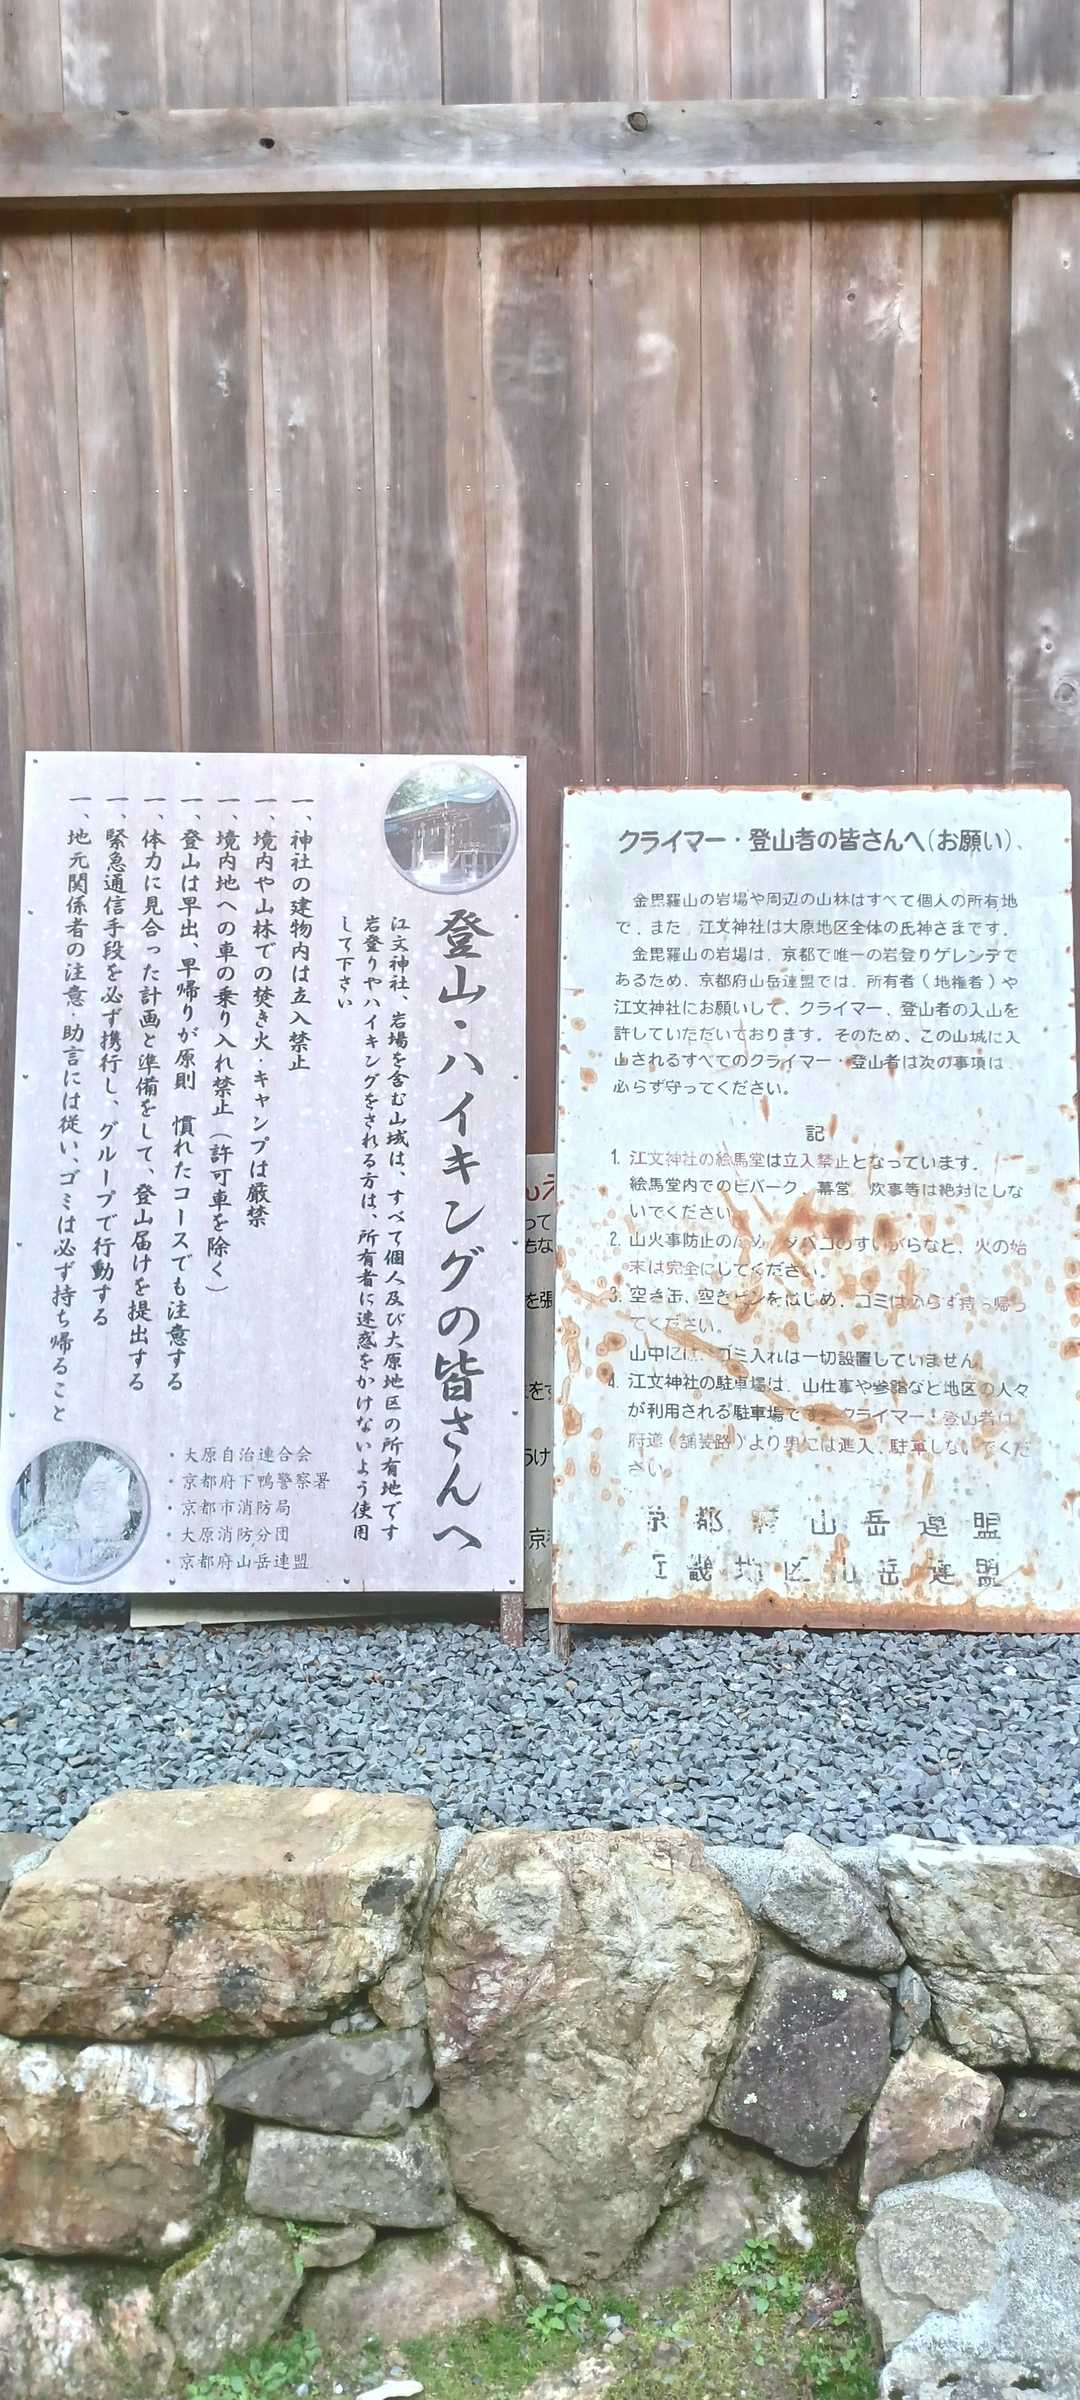 登山・ハイキングの皆さんへ
江文神社、岩場を含む山域は、すべて個人及び大原地区の所有地です
岩登りやハイキングをされる方は、所有者に迷惑をかけないよう使用
して下さい
一、神社の建物内は立入禁止
一、境内や山林での焚き火・キャンプは厳禁
一、境内地への車の乗り入れ禁止（許可車を除く）
一、登山は早出、早帰りが原則　慣れたコースでも注意する
一、体力に見合った計画と準備をして、登山届けを提出する
一、緊急通信手段を必ず携行し、グループで行動する
一、地元関係者の注意・助言には従い、ゴミは必ず持ち帰ること
・大原自治連合会
・京都府下鴨警察署
・京都市消防局
・大原消防分団
・京都府山岳連盟
クライマー・登山者の皆さんへ（お願い）
金毘羅山の岩場や周辺の山林はすべて個人の所有地
で、また、江文神社は大原地区全体の氏神さまです。
金毘羅山の岩場は、京都で唯一の岩登りゲレンデで
あるため、京都府山岳連盟では、所有者（地権者）や
江文神社にお願いして、クライマー、登山者の入山を
許していただいております。そのため、この山域に入
山されるすべてのクライマー・登山者は次の事項は、
必らず守ってください。
記
1. 江文神社の絵馬堂は立入禁止となっています。
絵馬堂内でのビバーク、幕営、炊事等は絶対にしな
いでください。
2. 山火事防止のため、タバコのすいがらなど、火の始
末は完全にしてください。
3. 空き缶、空きビンをはじめ、ゴミは必らず持ち帰っ
てください。
山中には、ゴミ入れは一切設置していません。
4. 江文神社の駐車場は、山仕事や参詣など地区の人々
が利用される駐車場です。クライマー・登山者は
府道（舗装路）より奥には進入、駐車しないでくだ
さい。
京都府山岳連盟
近畿地区山岳連盟
って
を張
をす
うけ
京